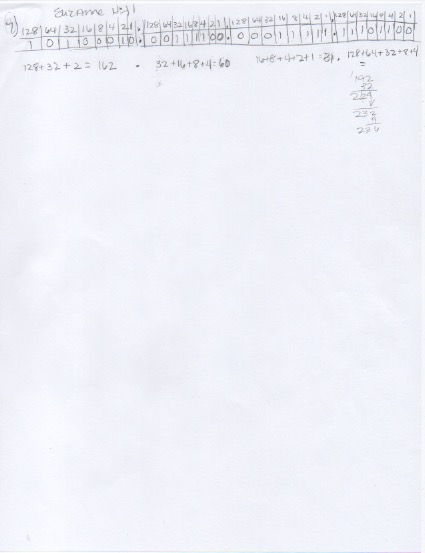 4)
128 64 32 16 8 4 2 1 . 128 64 32 16 8 4 2 1 . 128 64 32 16 8 4 2 1 . 128 64 32 16 8 4 2 1
1 0 1 0 0 0 1 0 . 0 0 1 1 1 1 0 0 . 0 0 0 1 1 1 1 1 . 1 1 1 0 1 1 0 0
128+32+2= 162 . 32+16+8+4=60 16+8+4+2+1=31. 128+64+32+8+4
=
192
32
224
8
232
4
236